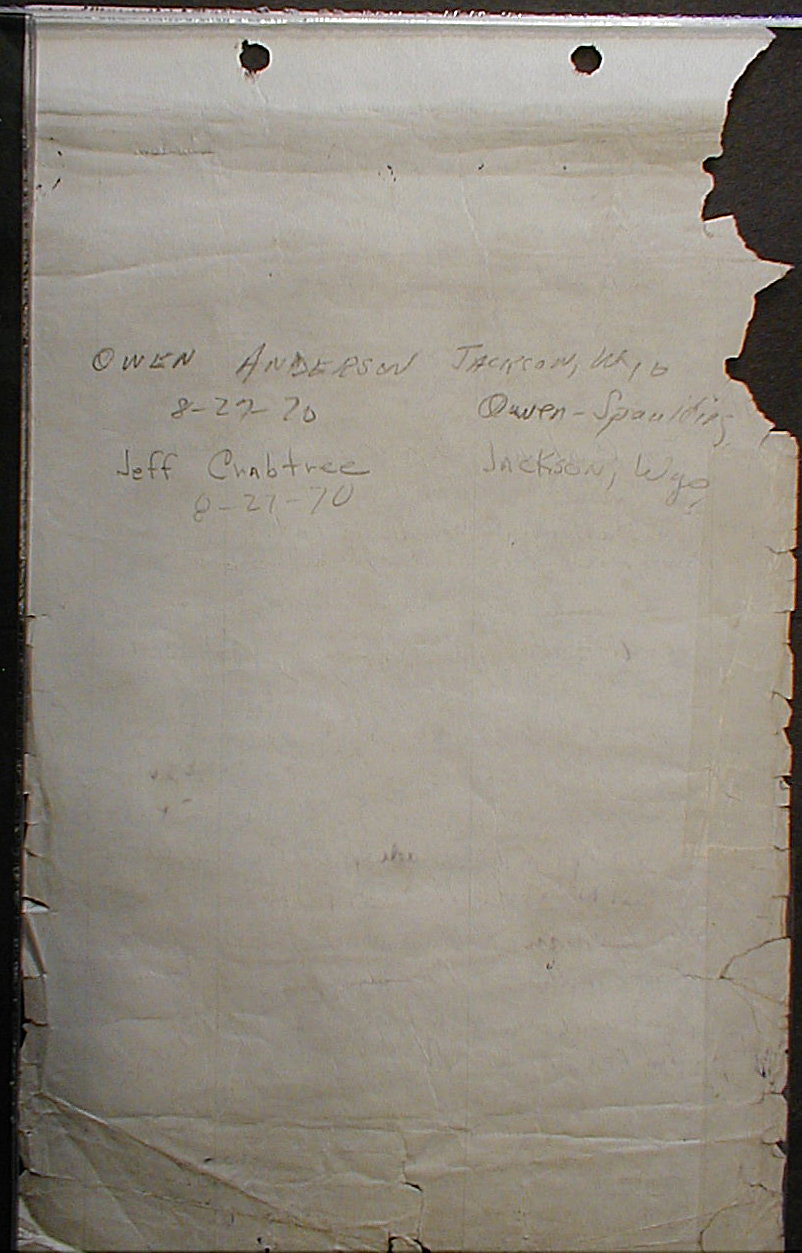 OWEN ANDERSON JACKSON,
8-22-70 Owen-Spaulding
Jeff Crabtree Jackson, Wyo,
8-21-70